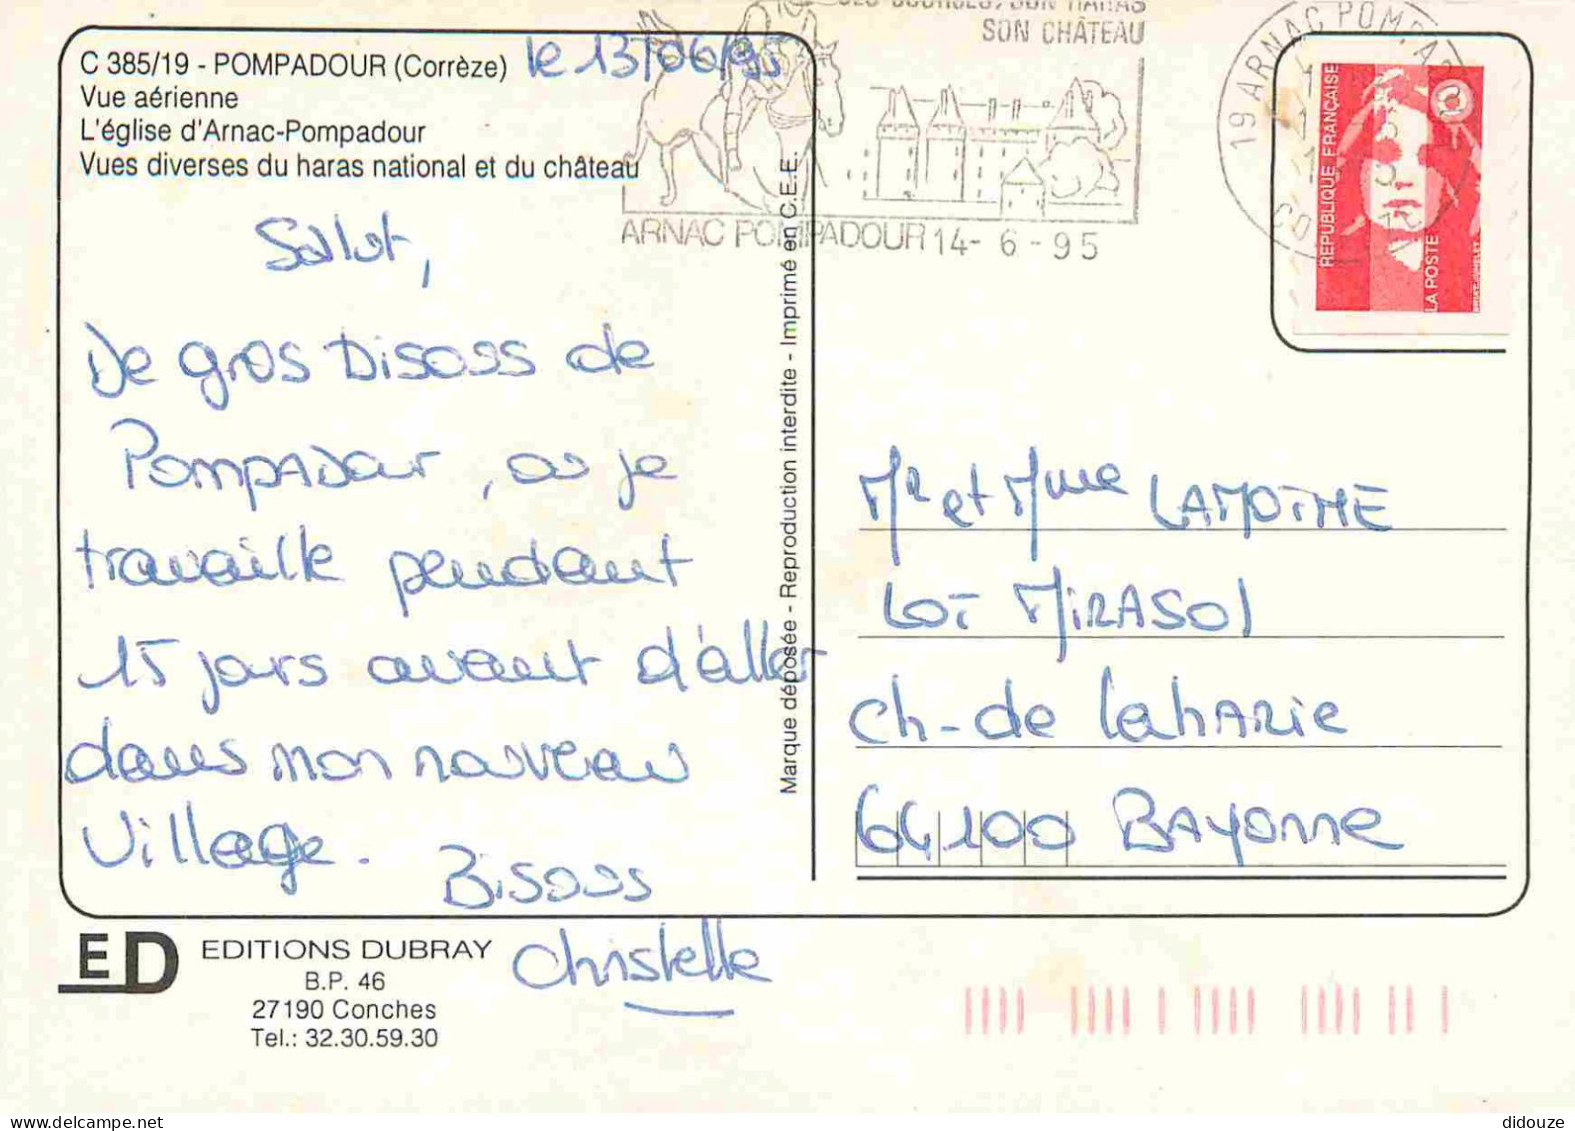 C 385/19 - POMPADOUR (Corrèze)
Vue aérienne
L'église d'Arnac-Pompadour
Vues diverses du haras national et du château
le 13/06/95
Salut,
De gros Bisous de
Pompadour, où je
travaille pendant
15 jours avant d'aller
dans mon nouveau
village.
Bisous
Christelle
ED
EDITIONS DUBRAY
B.P. 46
27190 Conches
Tel.: 32.30.59.30
Marque déposée - Reproduction interdite - Imprimé en C.E.E.
SES COURSES, SON HARAS
SON CHÂTEAU
ARNAC POMPADOUR 14- 6 - 95
19 ARNAC POMPADOUR
REPUBLIQUE FRANÇAISE
LA POSTE
BRIAT-JUMELET
Mr et Mme LAMOTHE
LOT MIRASOL
Ch- de LahARie
64100 BAYONNe
didouze